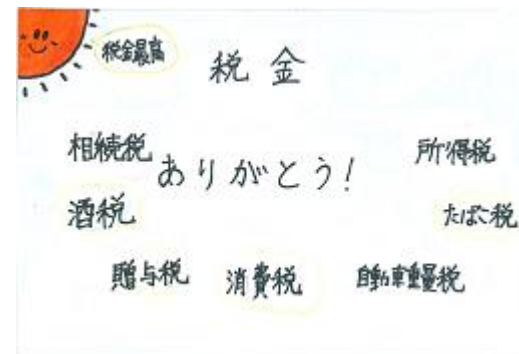 税金最高
税金
相続税
ありがとう!
所得税
酒税
たばこ税
贈与税
消費税
自動車重量税